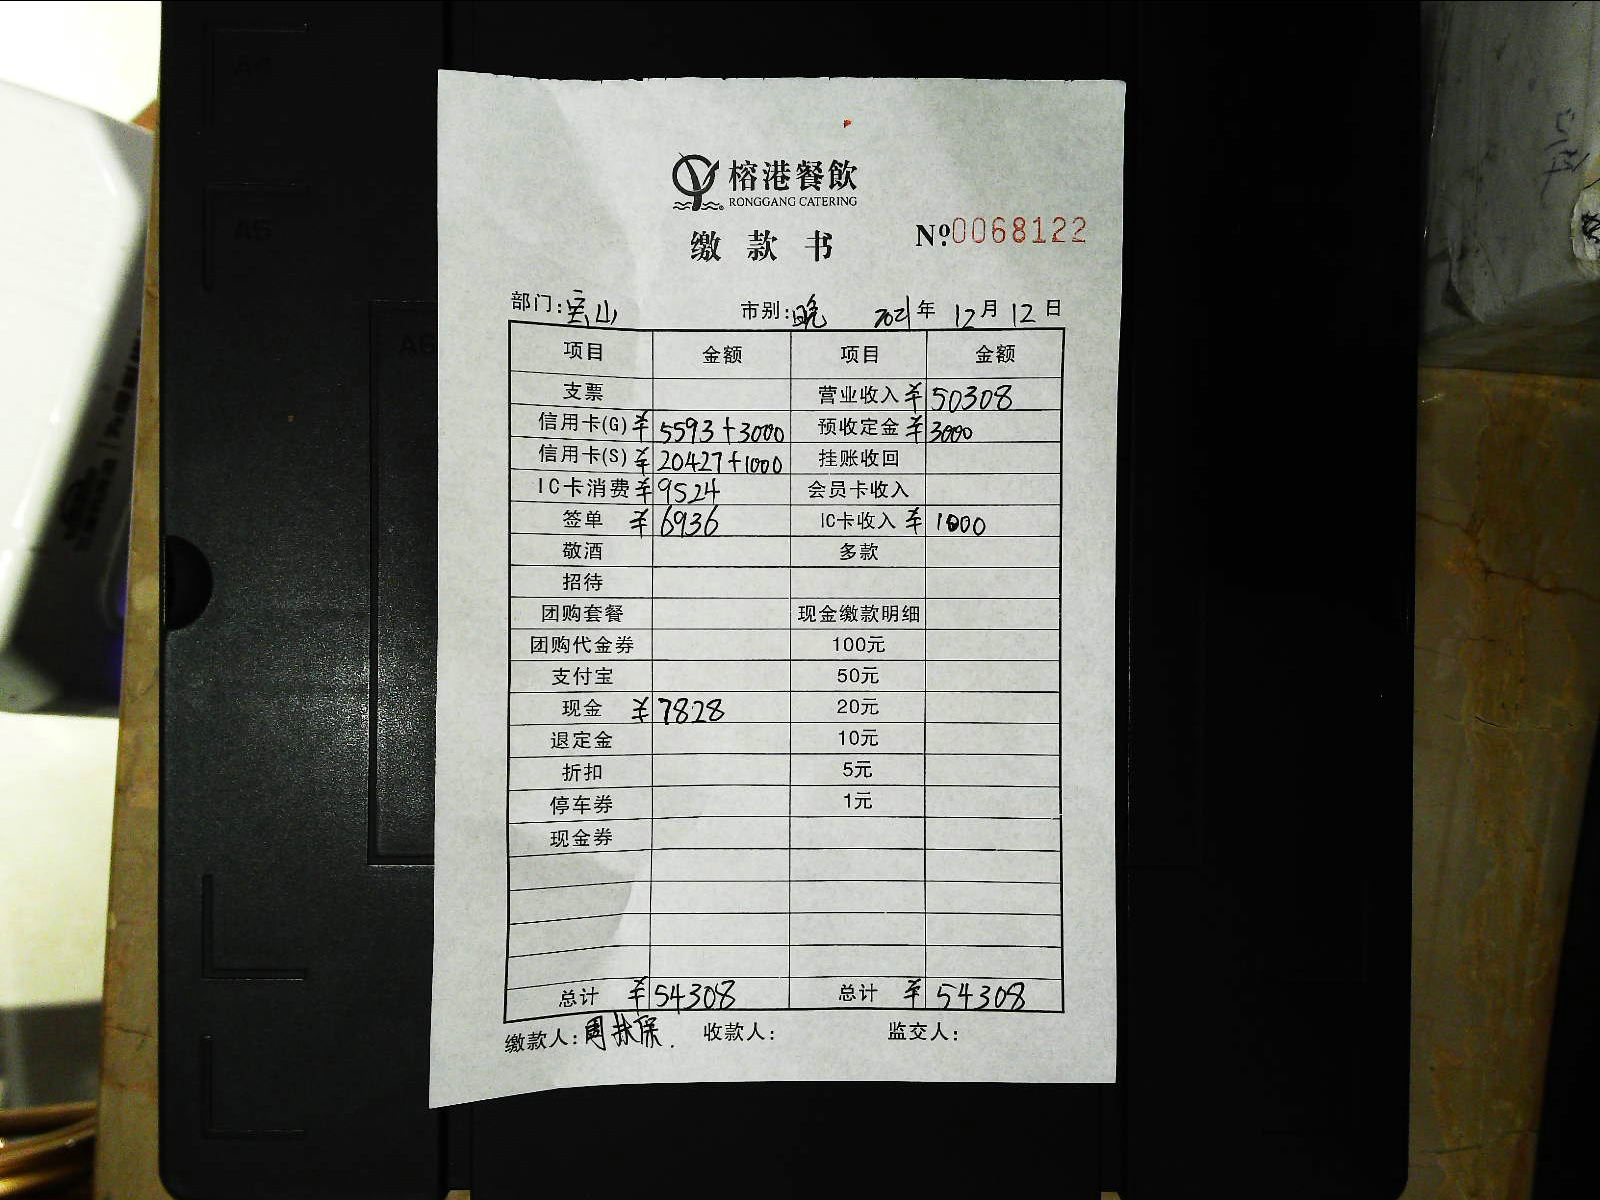 榕港餐飲
RONGGANG CATERING
缴款书 Nº0068122
部门:宝山 市别:晚 2021年 12月 12日
项目 金额 项目 金额
支票 营业收入 ¥50308
信用卡(G) ¥5593+3000 预收定金 ¥3000
信用卡(S) ¥20427+1000 挂账收回
IC卡消费 ¥9524 会员卡收入
签单 ¥6936 IC卡收入 ¥1000
敬酒 多款
招待
团购套餐 现金缴款明细
团购代金券 100元
支付宝 50元
现金 ¥7828 20元
退定金 10元
折扣 5元
停车券 1元
现金券
总计 ¥54308 总计 ¥54308
缴款人: 收款人: 监交人:
A5
A6